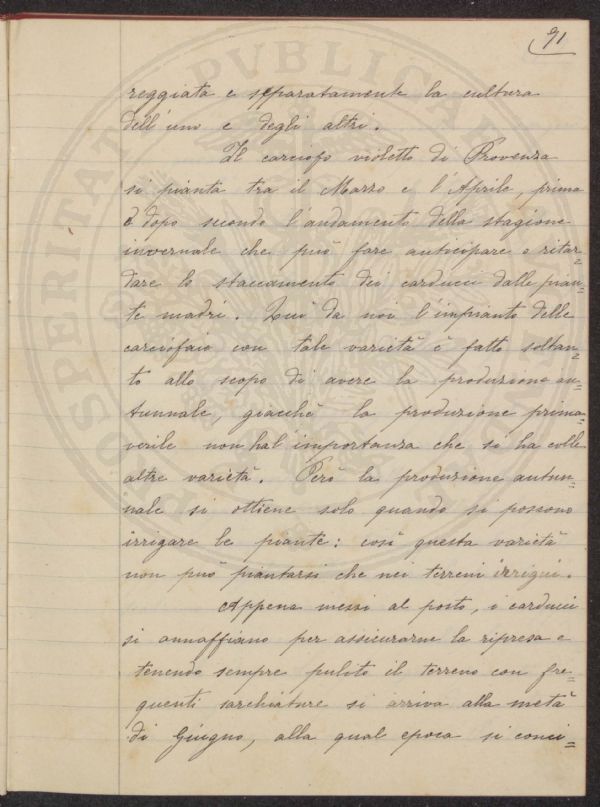 91
reggiata e separatamente la cultura
dell'uno e degli altri.
Il carciofo violetto di Provenza
si pianta tra il Marzo e l'Aprile, prima
o dopo secondo l'andamento della stagione
invernale che può fare anticipare o ritar=
dare lo staccamento dei carducci dalle pian=
te madri. Qui da noi l'impianto delle
carciofaie con tale varietà è fatto soltan=
to allo scopo di avere la produzione au=
tunnale, giacchè la produzione prima=
verile non ha l'importanza che si ha colle
altre varietà. Però la produzione autun=
nale si ottiene solo quando si possono
irrigare le piante: così questa varietà
non può piantarsi che nei terreni irrigui.
Appena messi al posto, i carducci
si annaffiano per assicurarne la ripresa e
tenendo sempre pulito il terreno con fre=
quenti sarchiature si arriva alla metà
di Giugno, alla qual epoca si conci=